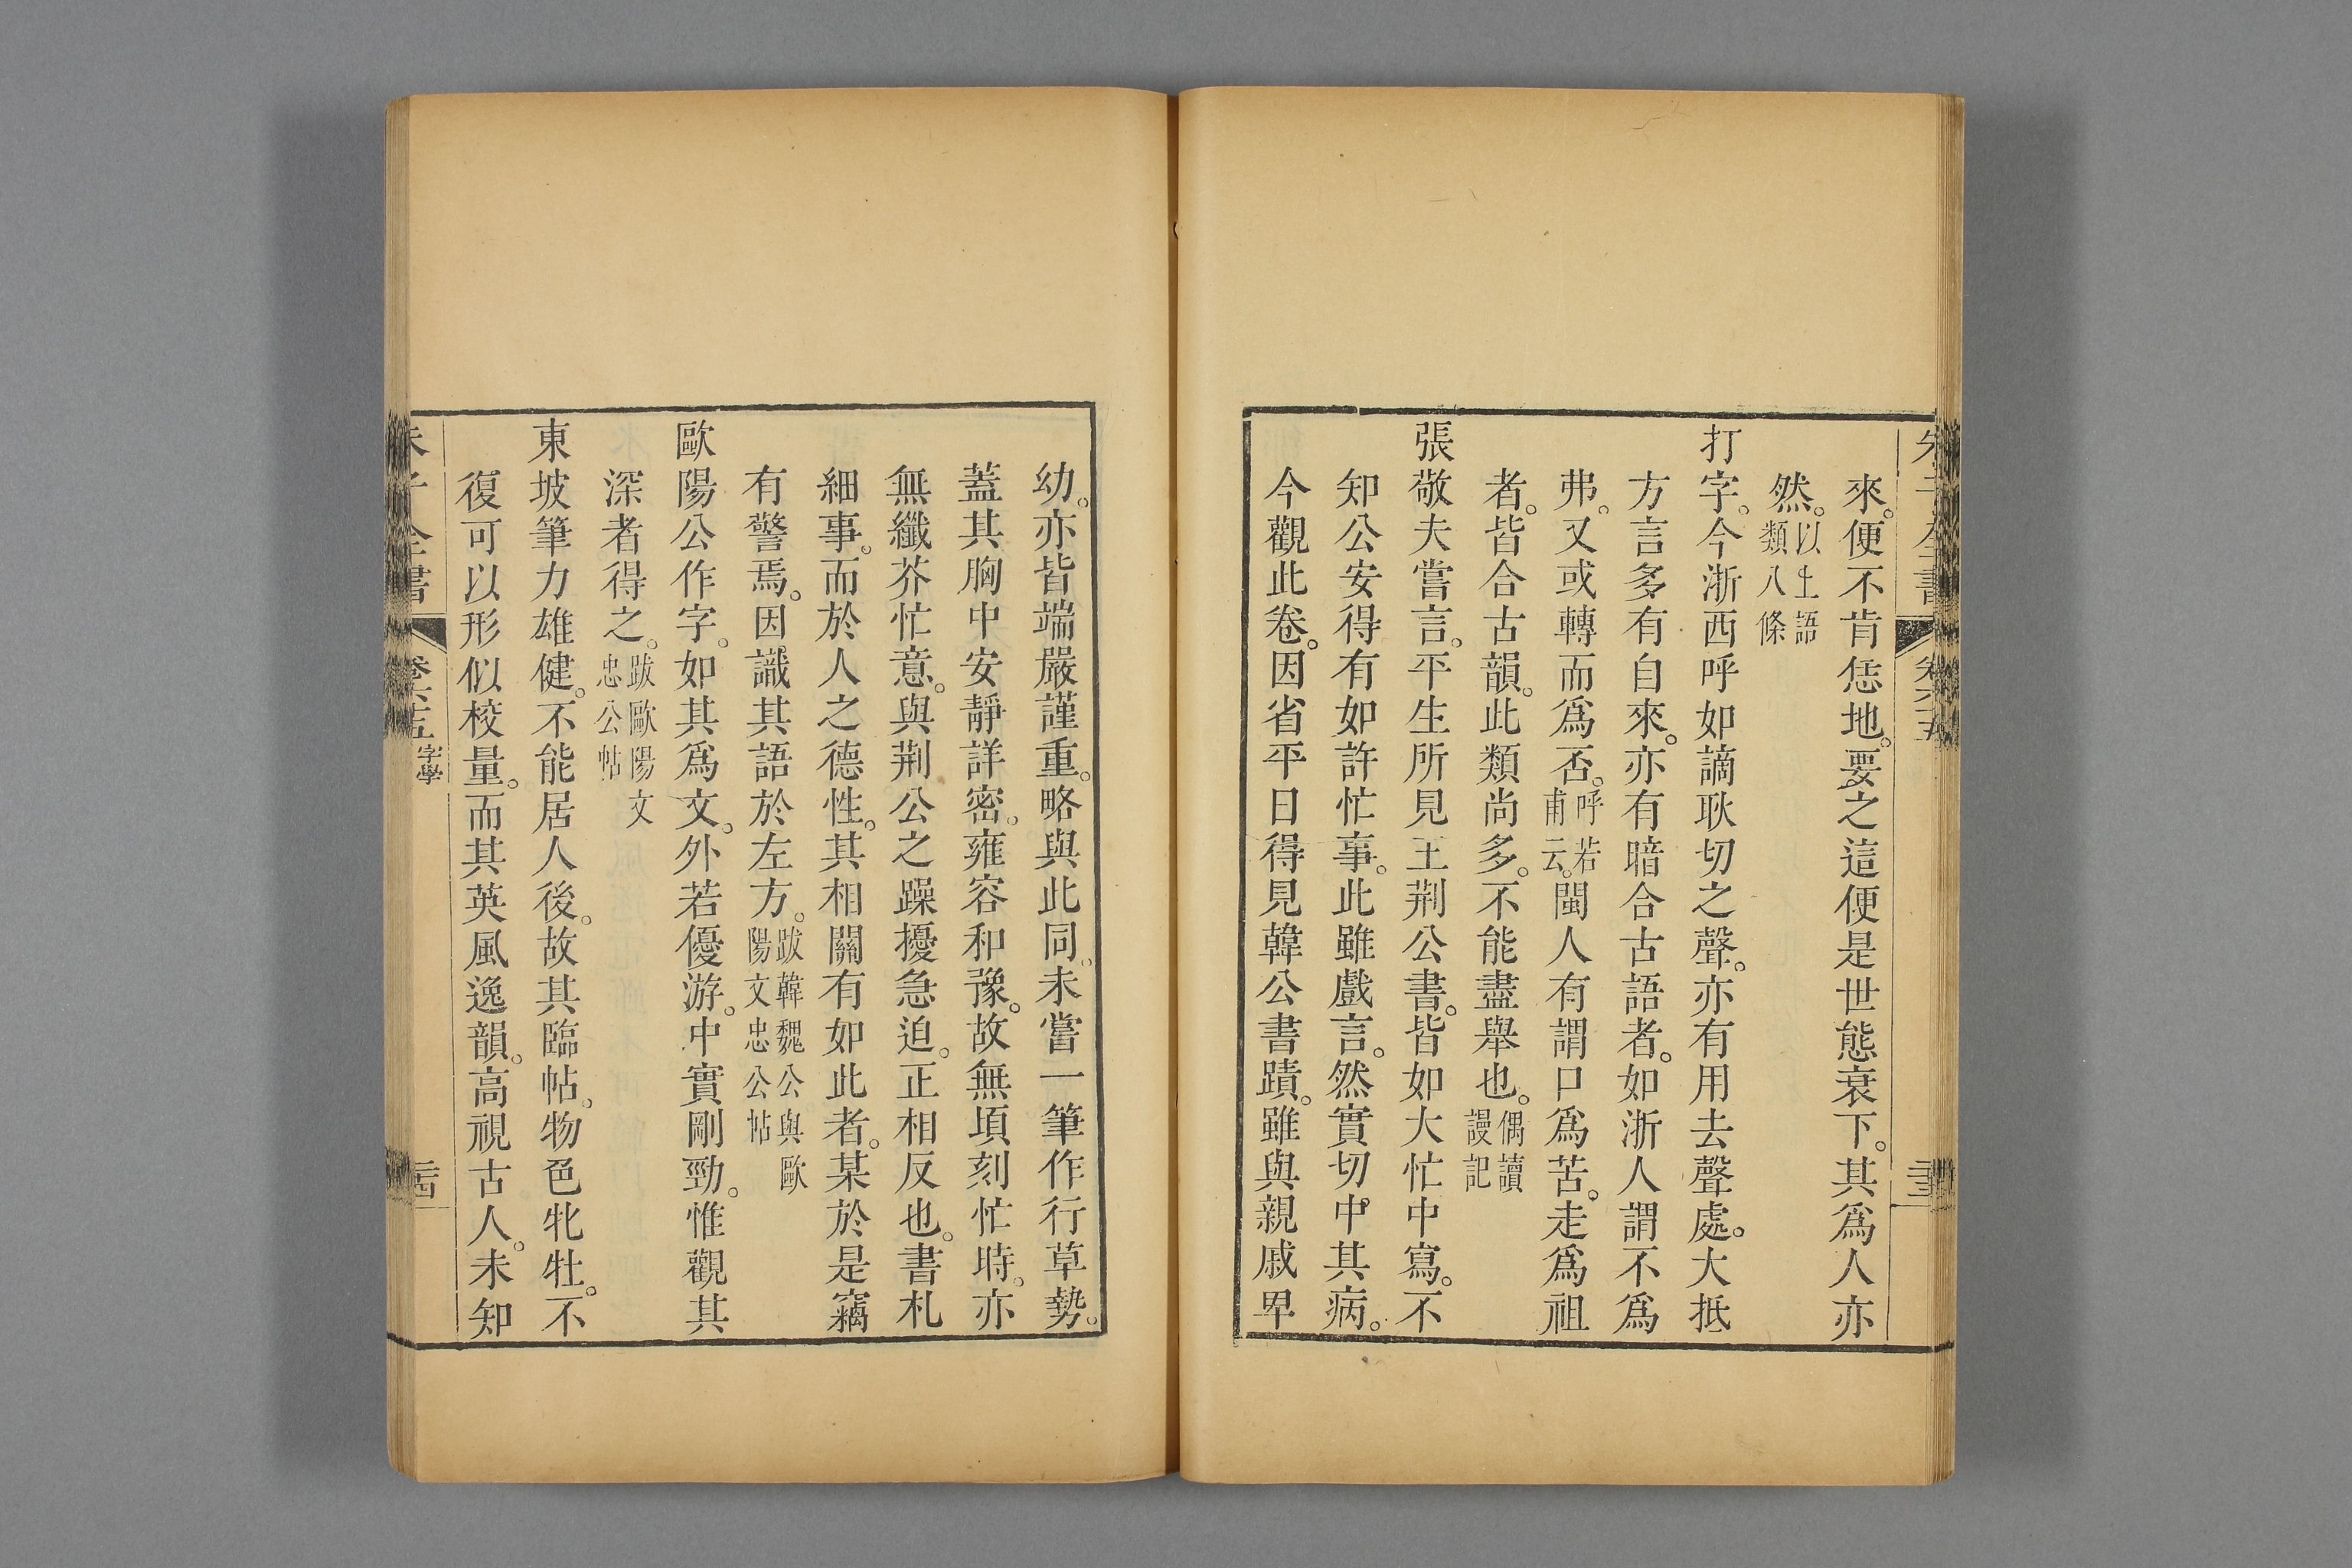 來。便不肯恁地。要之這便是世態衰下。其爲人亦
然。以上語類八條
打字。今浙西呼如謫耿切之聲。亦有用去聲處。大抵
方言多有自來。亦有暗合古語者。如浙人謂不爲
弗。又或轉而爲否。呼若甫云。閩人有謂口爲苦。走爲祖
者。皆合古韻。此類尚多。不能盡舉也。偶讀謾記
張敬夫嘗言。平生所見王荆公書。皆如大忙中寫。不
知公安得有如許忙事。此雖戲言。然實切中其病。
今觀此卷。因省平日得見韓公書蹟。雖與親戚卑
幼。亦皆端嚴謹重。略與此同。未嘗一筆作行草勢。
蓋其胸中安靜詳密。雍容和豫。故無頃刻忙時。亦
無纖芥忙意。與荆公之躁擾急迫。正相反也。書札
細事。而於人之德性。其相關有如此者。某於是竊
有警焉。因識其語於左方。跋韓魏公與歐陽文忠公帖
歐陽公作字。如其爲文。外若優游。中實剛勁。惟觀其
深者得之。跋歐陽文忠公帖
東坡筆力雄健。不能居人後。故其臨帖。物色牝牡。不
復可以形似校量。而其英風逸韻。高視古人。未知
朱子全書 卷六十五 字學 二十四